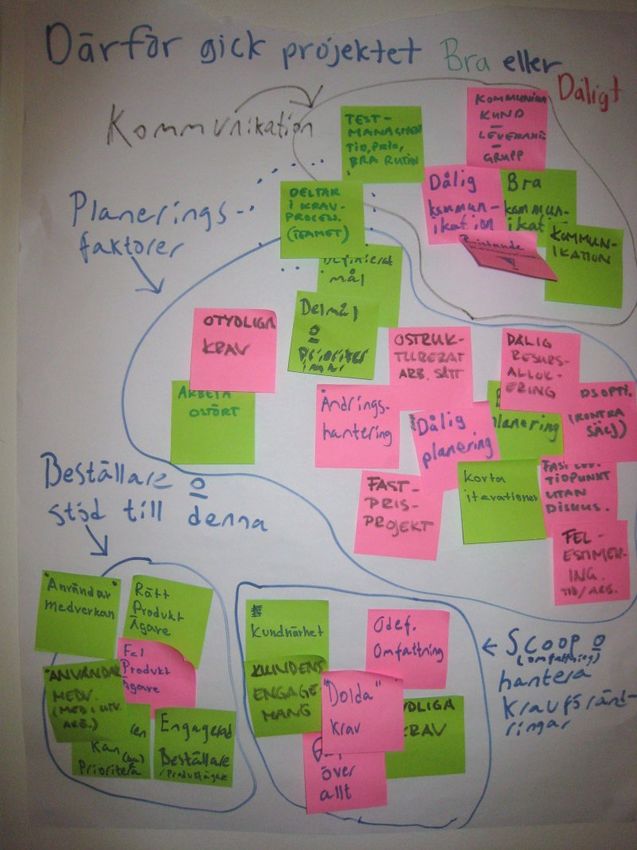 Därför gick projektet Bra eller
Dåligt
Kommunikation
TEST-
BRA RUTIN
KUND
GRUPP
DELTAR
I KRAV-
PROCESS.
(TEAMET)
Dålig
kommun-
ikation
Bra
kommun-
ikat
KOMMUN-
IKATION
Planerings-
faktorer
Definierat
mål
Delmål
o
OTYDLIGA
KRAV
ARBETA
OSTÖRT
OSTRUK-
TURERAT
ARB. SÄTT
DÅLIG
RESURS-
ALLOK-
ERING
Ändrings-
hantering
Dålig
planering
planering
(KONTRA
SÄLJ)
FAST-
PRIS-
PROJEKT
Korta
iterationer
TIDPUNKT
UTAN
DISKUS.
FEL-
ESTIMER-
ING.
TID/ARB.
Beställare o
stöd till denna
Användar
medverkan
Rätt
Produkt
Ägare
Fel
Produkt
ägare
ANVÄNDAR
MEDV.
(MED I UTV.
ARB.)
Kan
Prioritera
Engagerad
Beställare
/Produktägare
Kundnärhet
KUNDENS
ENGAGE
MANG
Odef.
Omfattning
"Dolda"
krav
YDLIGA
KRAV
över
allt
Scoop o
(omfattning)
hantera
kravföränd-
ringar